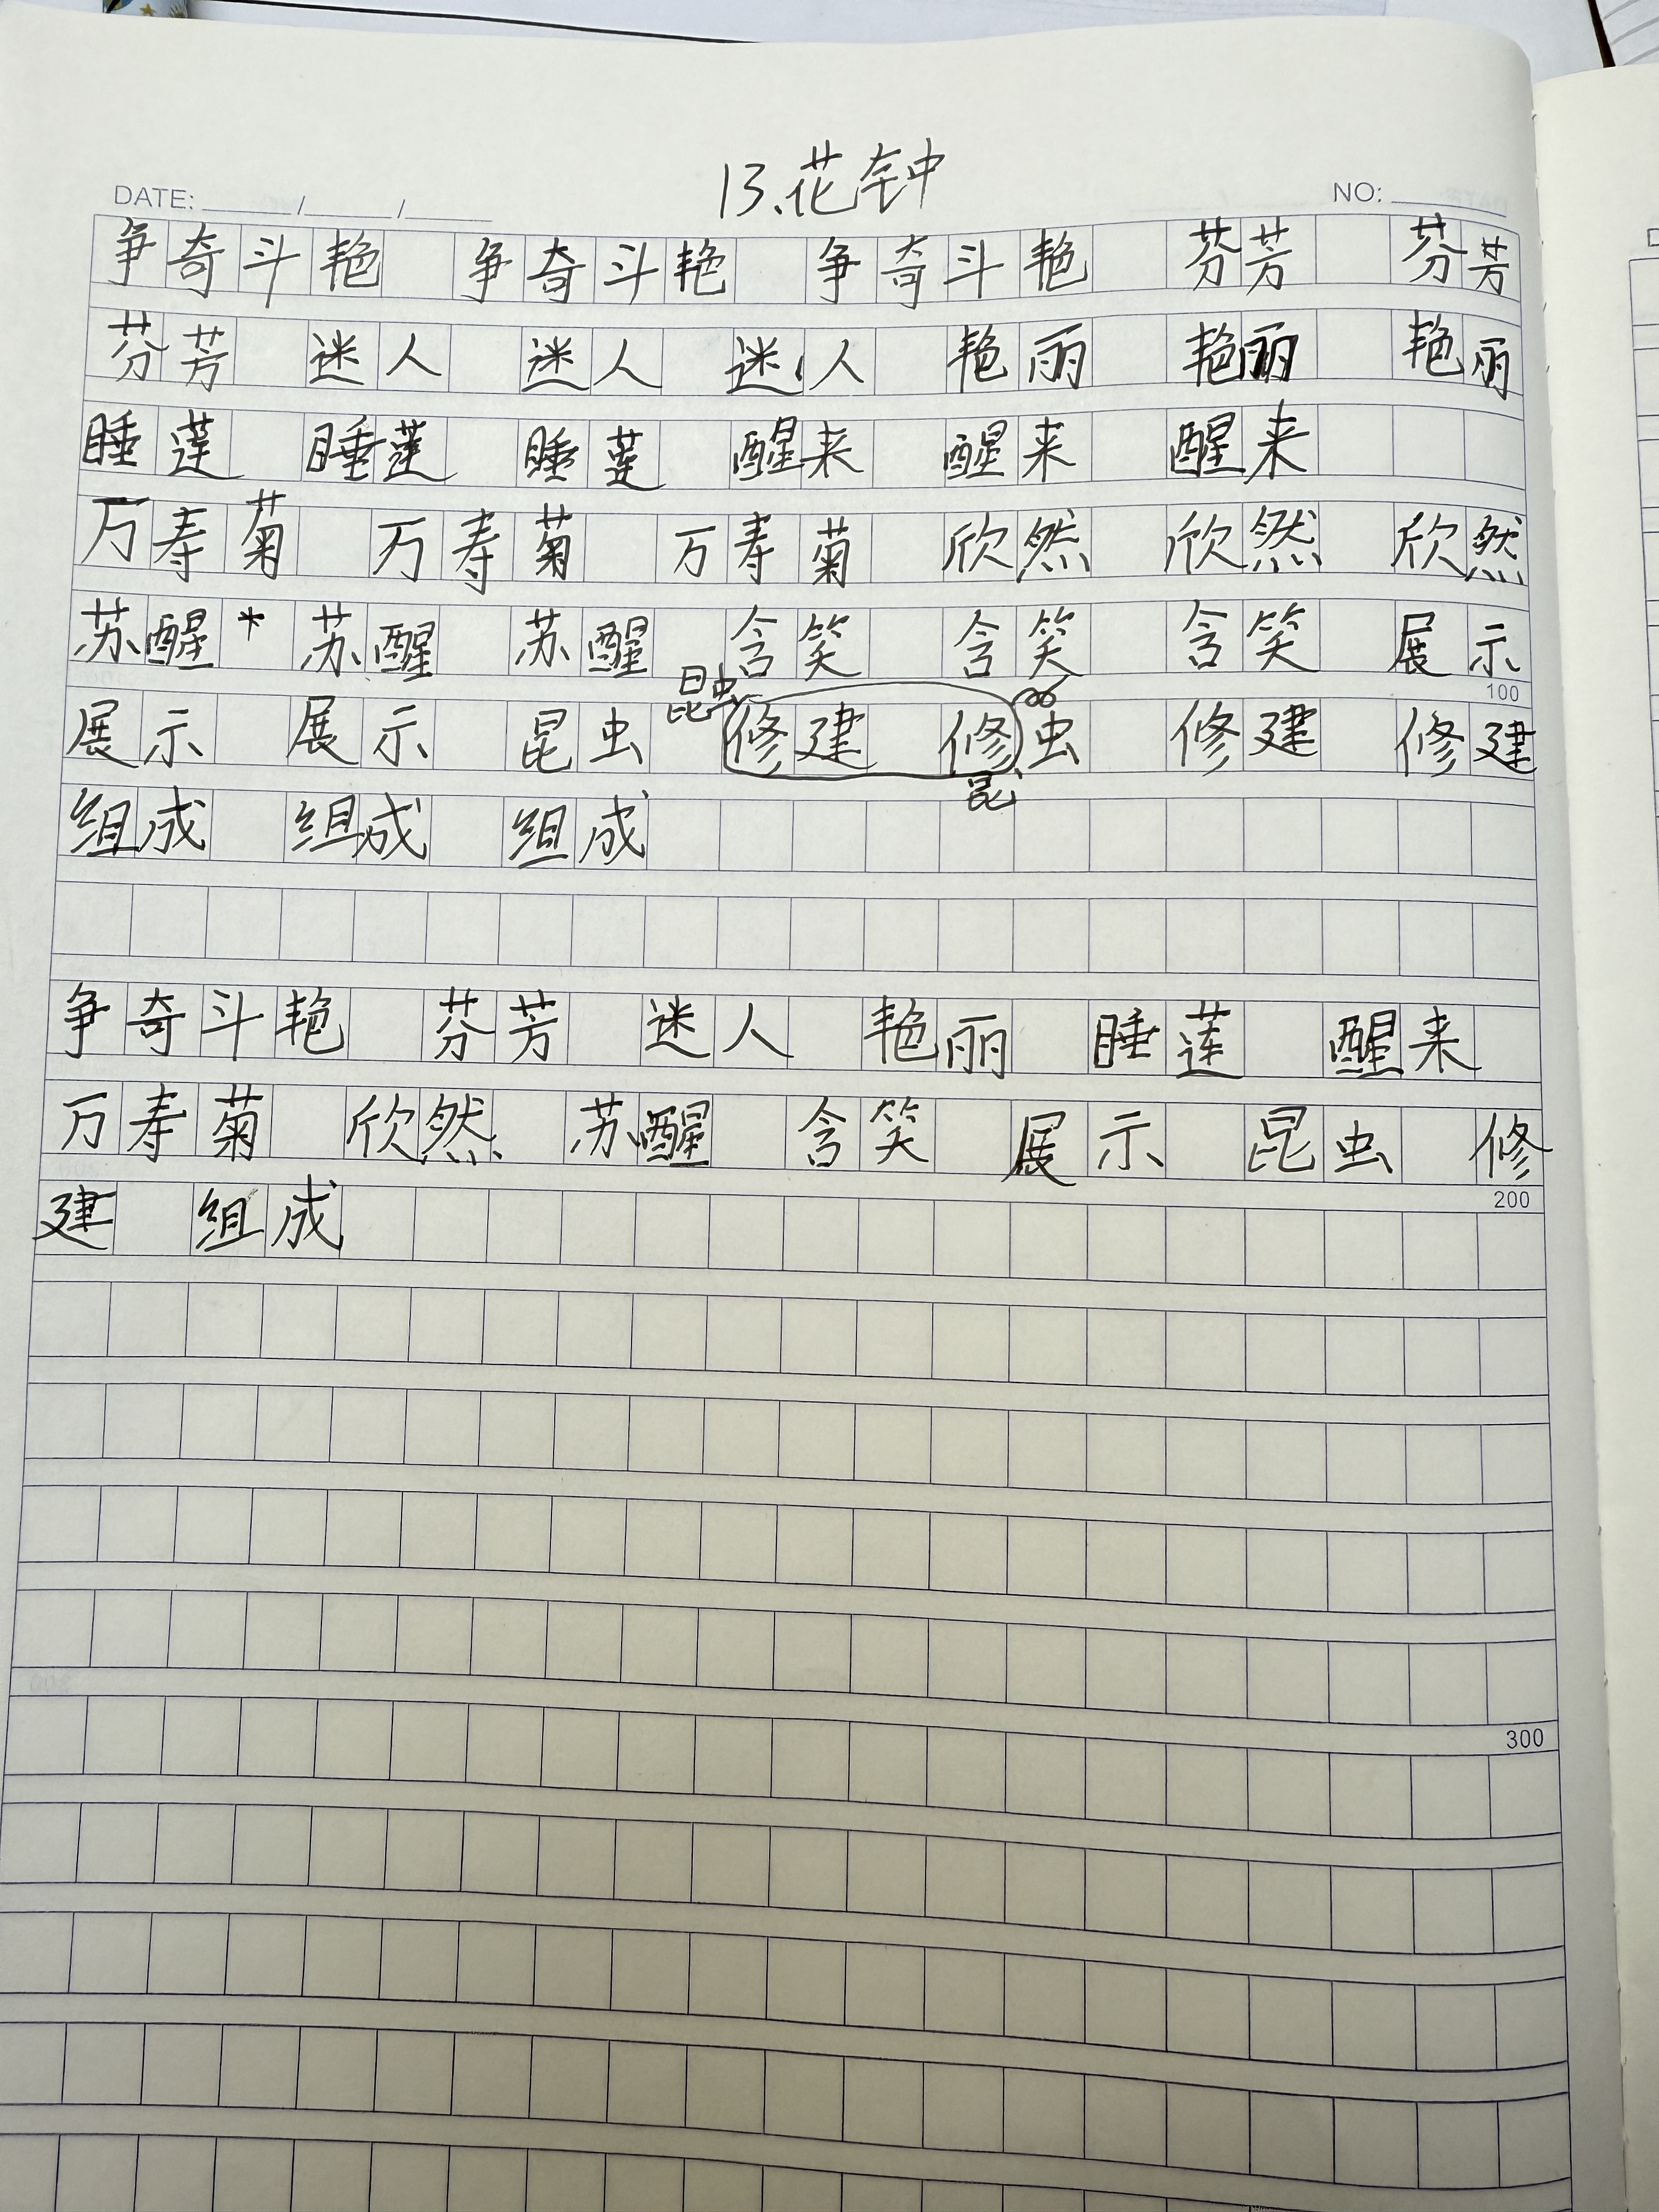 13.花钟
DATE: / / NO:
争奇斗艳 争奇斗艳 争奇斗艳 芬芳 芬芳
芬芳 迷人 迷人 迷人 艳丽 艳丽 艳丽
睡莲 睡莲 睡莲 醒来 醒来 醒来
万寿菊 万寿菊 万寿菊 欣然 欣然 欣然
苏醒* 苏醒 苏醒 含笑 含笑 含笑 展示
100
昆虫
展示 展示 昆虫 修建 修虫 修建 修建
昆
组成 组成 组成
争奇斗艳 芬芳 迷人 艳丽 睡莲 醒来
万寿菊 欣然 苏醒 含笑 展示 昆虫 修
200
建 组成
300